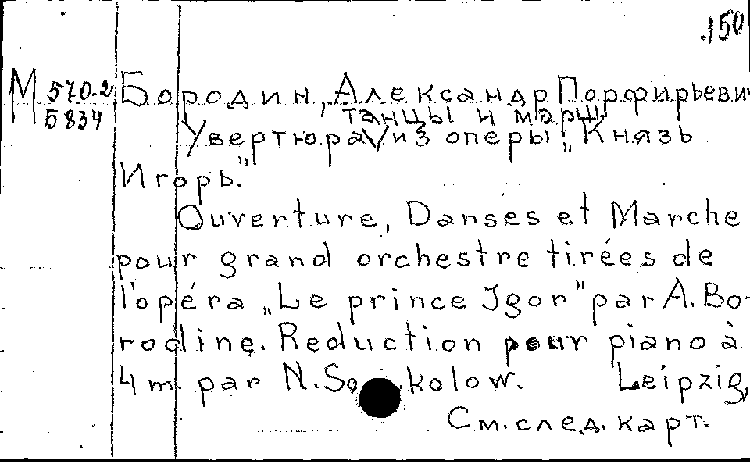 .150
М 570-2 Бородин, Александр Порфирьеви
Б 834 танцы и марш
Увертюра V из оперы „Князь
Игорь."
Ouverture, Danses et Marche
pour grand orchestre tirées de
l'opéra „Le prince Igor" par A. Bo-
rodine. Reduction pour piano à
4 m. par N. So kolow. Leipzig,
См. след. карт.